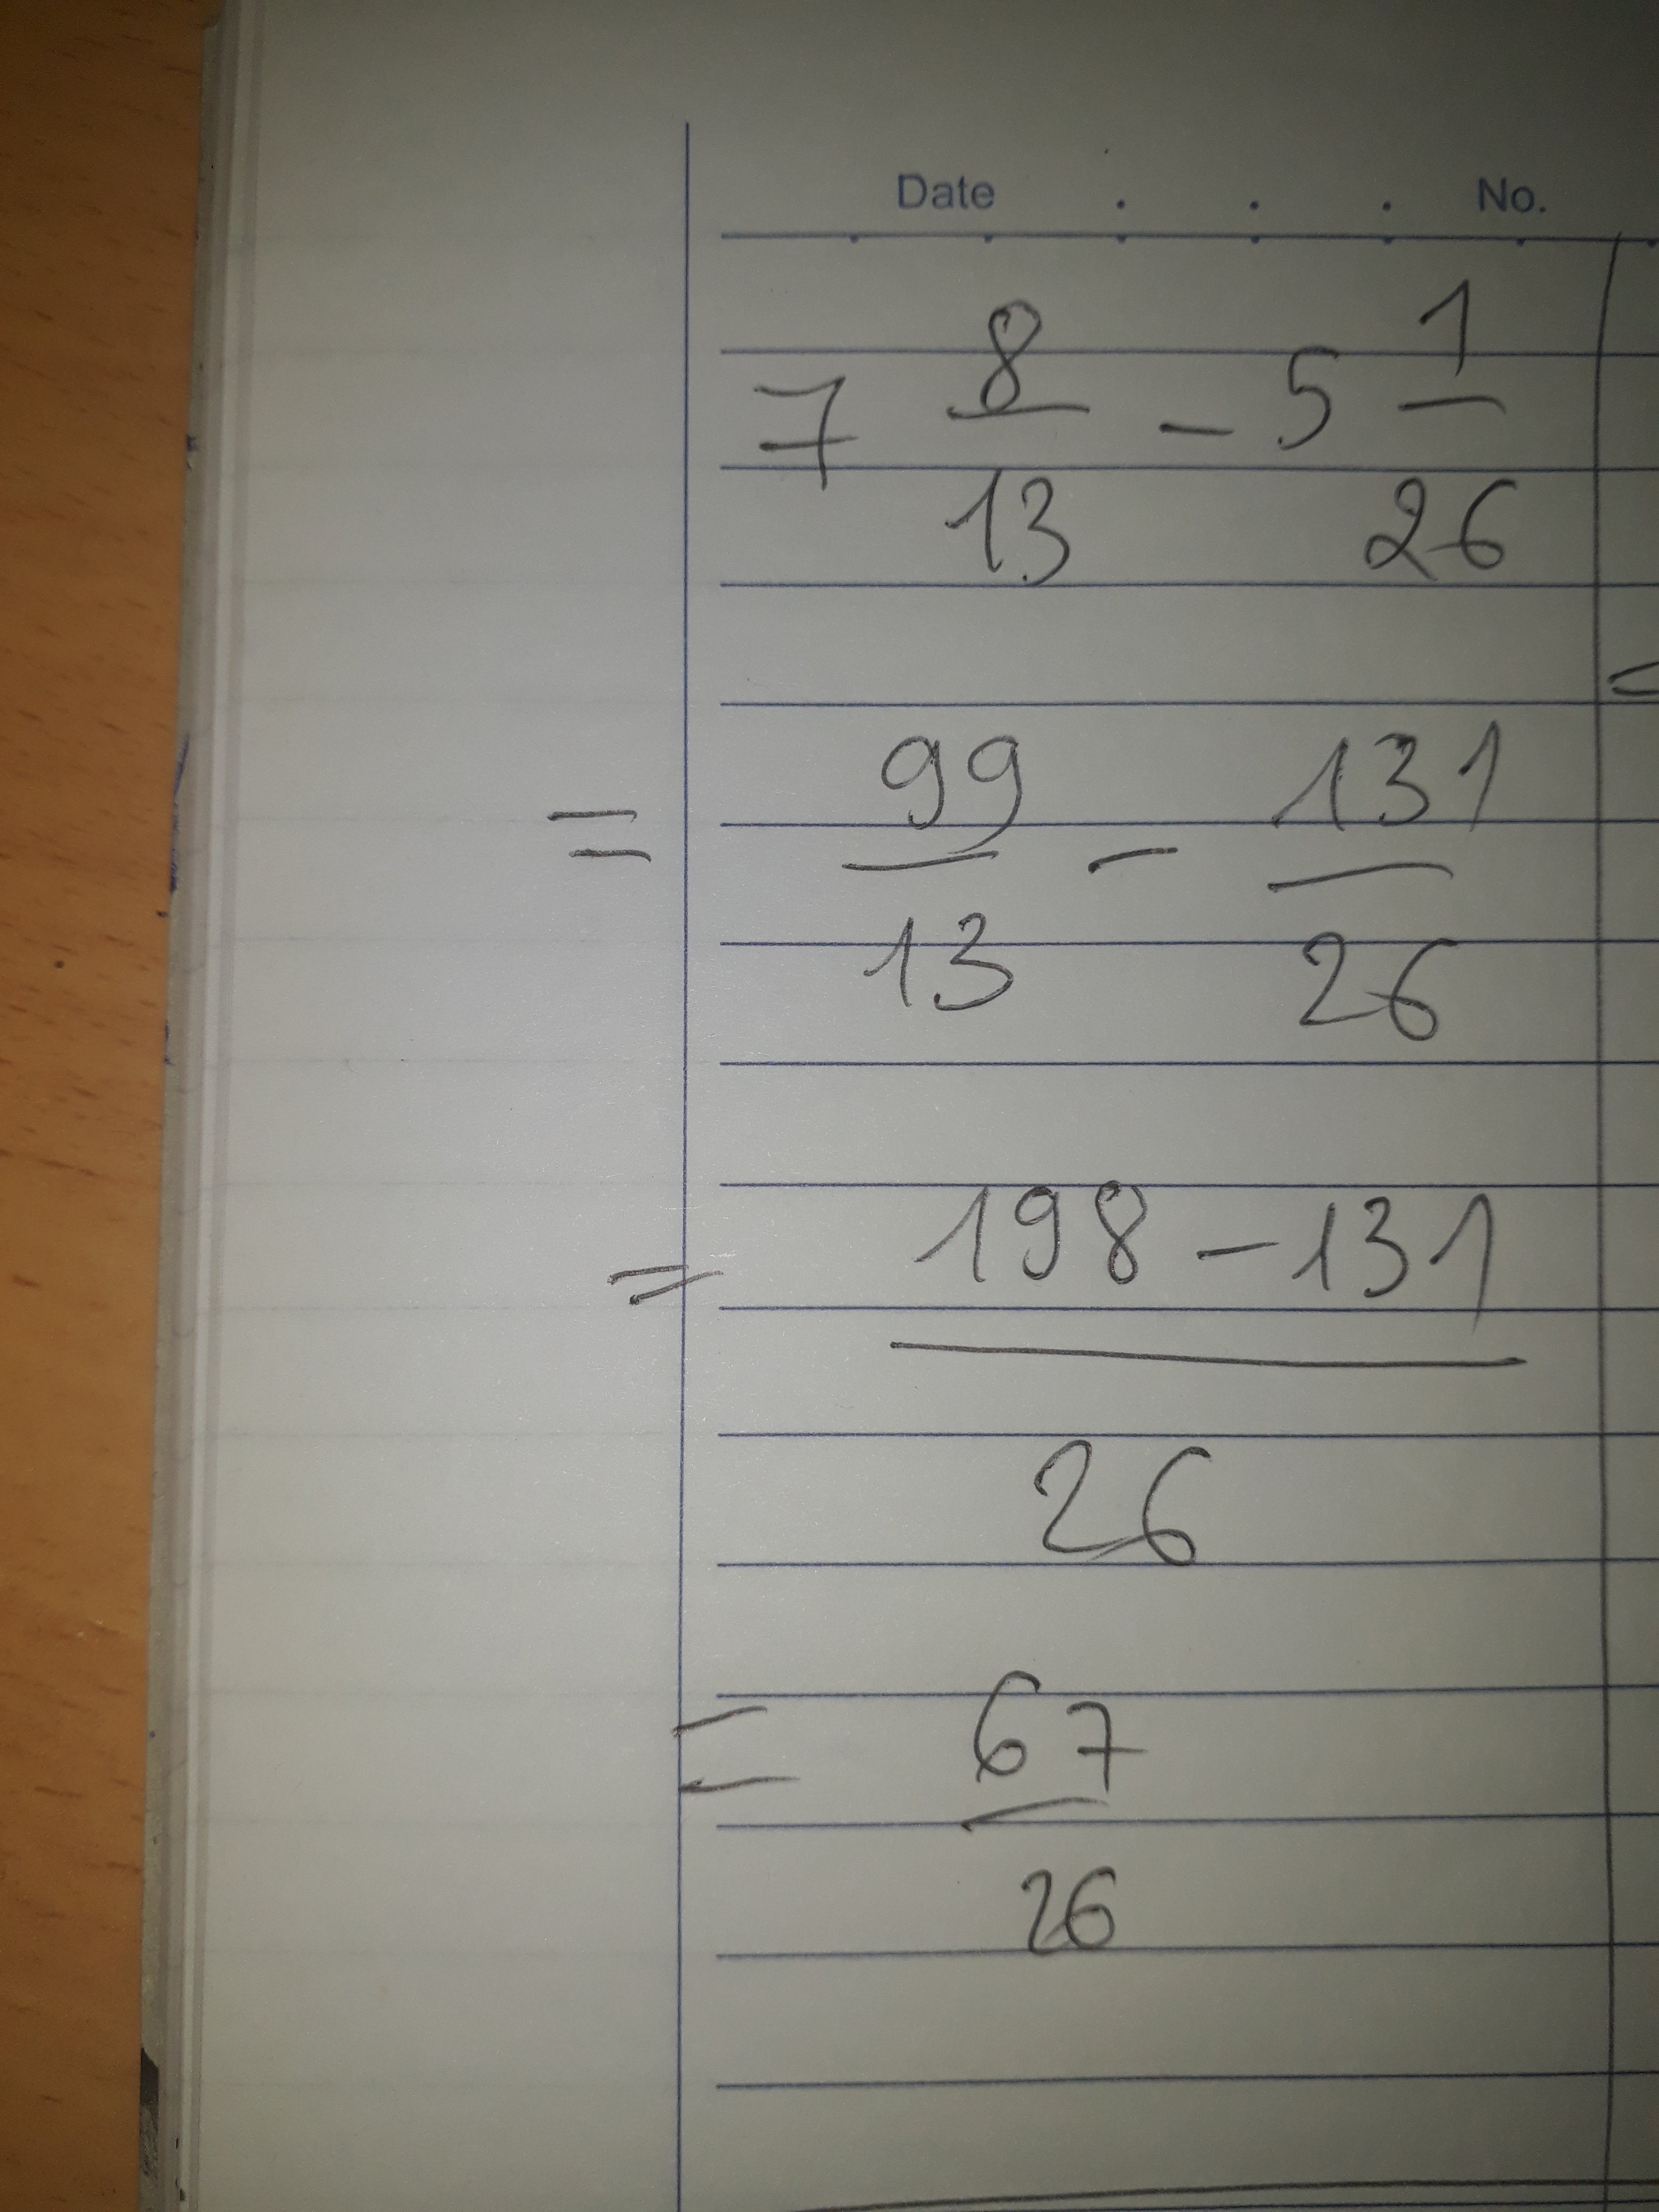 Date . . . No.
7 8/13 - 5 1/26
= 99/13 - 131/26
= 198-131/26
= 67/26